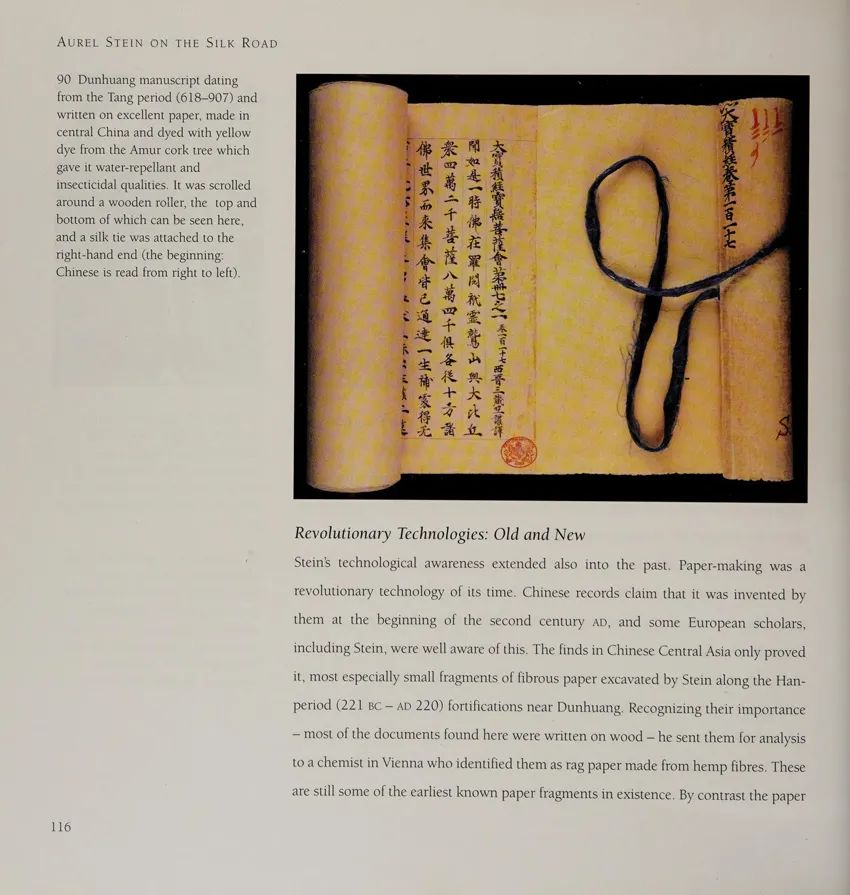 AUREL STEIN ON THE SILK ROAD
90 Dunhuang manuscript dating
from the Tang period (618–907) and
written on excellent paper, made in
central China and dyed with yellow
dye from the Amur cork tree which
gave it water-repellant and
insecticidal qualities. It was scrolled
around a wooden roller, the top and
bottom of which can be seen here,
and a silk tie was attached to the
right-hand end (the beginning:
Chinese is read from right to left).
大寶積經卷第一百一十七
大寶積經寶髻菩薩會第卌七之一 卷一百一十七 西晉三藏竺法護譯
聞如是一時佛在羅閱祇靈鷲山與大比丘
眾四萬二千菩薩八萬四千俱各從十方諸
佛世界而來集會皆已通達一生補處得无
Revolutionary Technologies: Old and New
Stein's technological awareness extended also into the past. Paper-making was a
revolutionary technology of its time. Chinese records claim that it was invented by
them at the beginning of the second century AD, and some European scholars,
including Stein, were well aware of this. The finds in Chinese Central Asia only proved
it, most especially small fragments of fibrous paper excavated by Stein along the Han-
period (221 BC – AD 220) fortifications near Dunhuang. Recognizing their importance
– most of the documents found here were written on wood – he sent them for analysis
to a chemist in Vienna who identified them as rag paper made from hemp fibres. These
are still some of the earliest known paper fragments in existence. By contrast the paper
116